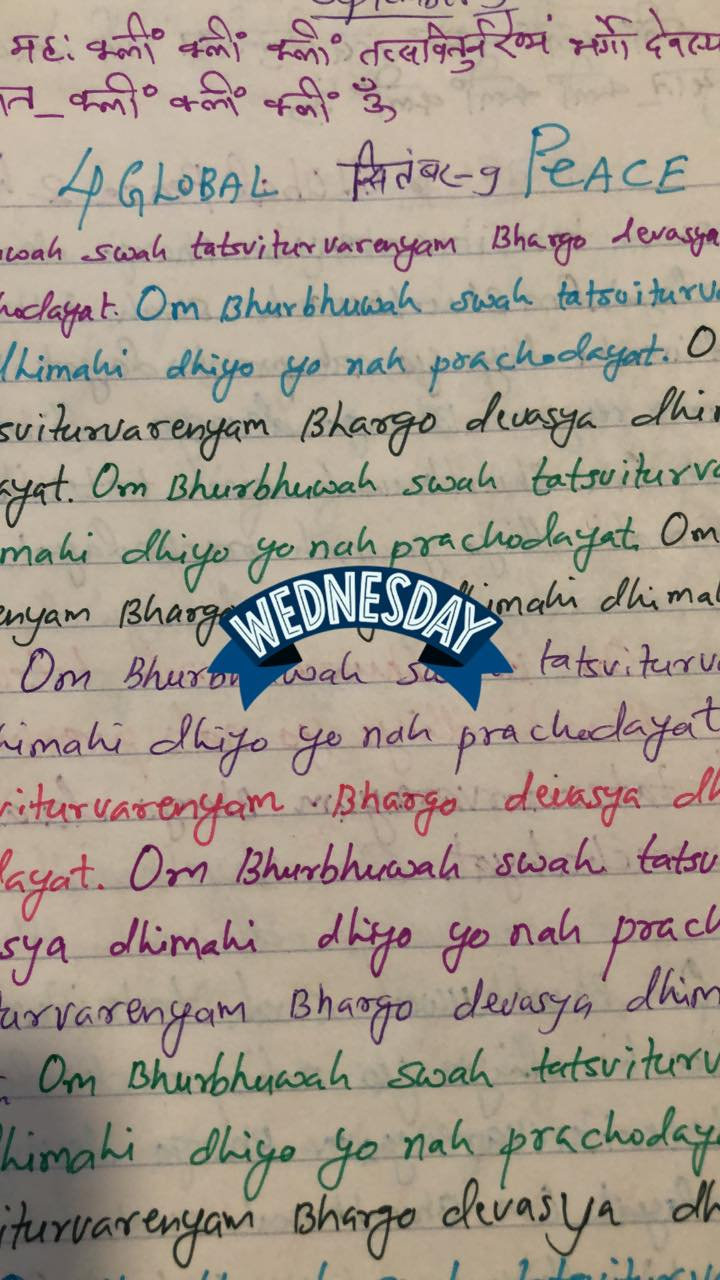 September
मह: क्लीं क्लीं क्लीं तत्सवितुर्वरेण्यं भर्गो देवस्य
क्लीं क्लीं क्लीं ॐ
4 GLOBAL सितंबर-9 PEACE
uwah swah tatsviturvarenyam Bhargo devasya
hodayat. Om Bhurbhuwah swah tatsviturva
dhimahi dhiyo yo nah prachodayat. O
sviturvarenyam Bhargo devasya dhim
ayat. Om Bhurbhuwah swah tatsviturva
mahi dhiyo yo nah prachodayat. Om
enyam Bhargo imahi dhimah
WEDNESDAY
Om Bhurbh wah sw tatsviturva
himahi dhiyo yo nah prachodayat
viturvarenyam Bhargo devasya dh
dayat. Om Bhurbhuwah swah tatsv
sya dhimahi dhiyo yo nah prach
turvarenyam Bhargo devasya dhim
Om Bhurbhuwah swah tatsviturv
himahi dhiyo yo nah prachoday
viturvarenyam Bhargo devasya dh